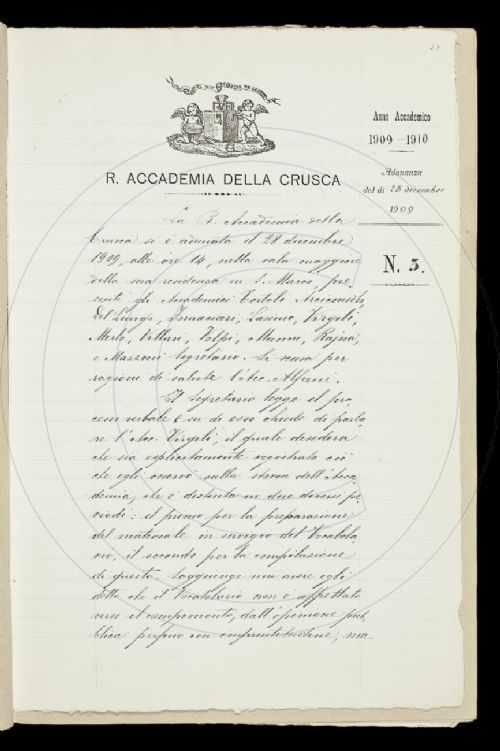 23
Anno Accademico
1909–1910
Adunanza
del dì 28 dicembre
1909
N. 5.
R. ACCADEMIA DELLA CRUSCA
La R. Accademia della
Crusca si è adunata il 28 dicembre
1909, alle ore 14, nella sala maggiore
della sua residenza in S. Marco, pre-
senti gli Accademici Tortoli Arciconsolo,
Del Lungo, Fornaciari, Lasinio, Virgili,
Merlo, Villari, Volpi, Manni, Rajna,
e Mazzoni Segretario. Si scusa per
ragione di salute l'Acc. Alfani.
Il Segretario legge il pro-
cesso verbale e su di esso chiede di parla-
re l'Acc. Virgili, il quale desidera
che sia esplicitamente registrato ciò
che egli osservò sulla storia dell'Acca-
demia, che è distinta in due diversi pe-
riodi: il primo per la preparazione
del materiale in servigio del Vocabola-
rio, il secondo per la compilazione
di questo. Soggiunge non avere egli
detto che il Vocabolario non è aspettato
verso il compimento, dall'opinione pub-
blica perfino con impazientazione, ma